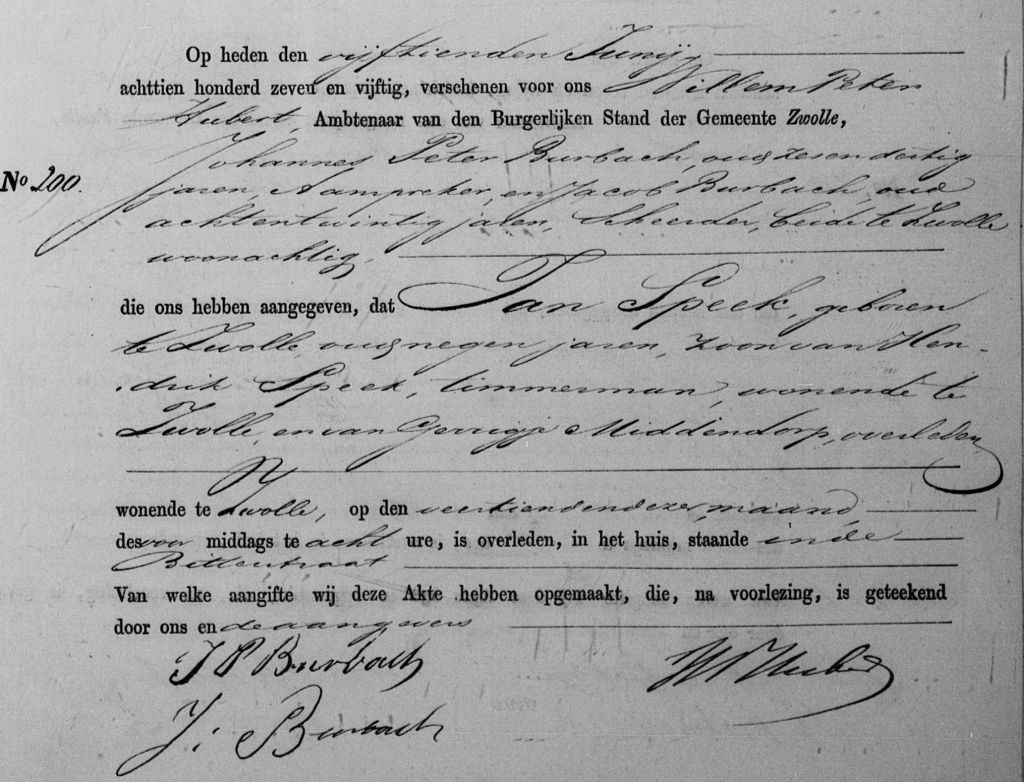 Op heden den vijftienden Junij
achttien honderd zeven en vijftig, verschenen voor ons Willem Peter
Hubert, Ambtenaar van den Burgerlijken Stand der Gemeente Zwolle,
Johannes Peter Burbach, oud zesendertig
No 200.
jaren, Aanspreker, en Jacob Burbach, oud
achtentwintig jaren, Scheerder, beide te Zwolle
woonachtig,
die ons hebben aangegeven, dat Jan Speek, geboren
te Zwolle, oud negen jaren, zoon van Hen-
drik Speek, timmerman, wonende te
Zwolle, en van Gerrigje Middendorp, overleden
wonende te Zwolle, op den veertienden dezer maand,
des voor middags te acht ure, is overleden, in het huis, staande in de
Bitterstraat
Van welke aangifte wij deze Akte hebben opgemaakt, die, na voorlezing, is geteekend
door ons en de aangevers
J P Burbach
W P Hubert
J: Burbach